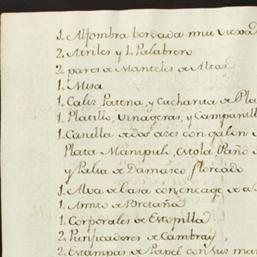 1. Alfombra bordada mui vieja
2. Atriles y 1. Palabrero
2. pares de Manteles de Altar
1. Misa
1. Caliz Patena, y Cucharita de Pla
1. Platillo, Vinageras, y Campanill
1. Casulla de dos azes con galon
Plata Manipulo, Estola Paño
y Palia de Damasco floreado
1. Alva de Casa con encage de
1. Amito de Bretaña
1. Corporales de Estopilla
2. Purificadores de Cambray
2. Estampas de Papel con sus mar